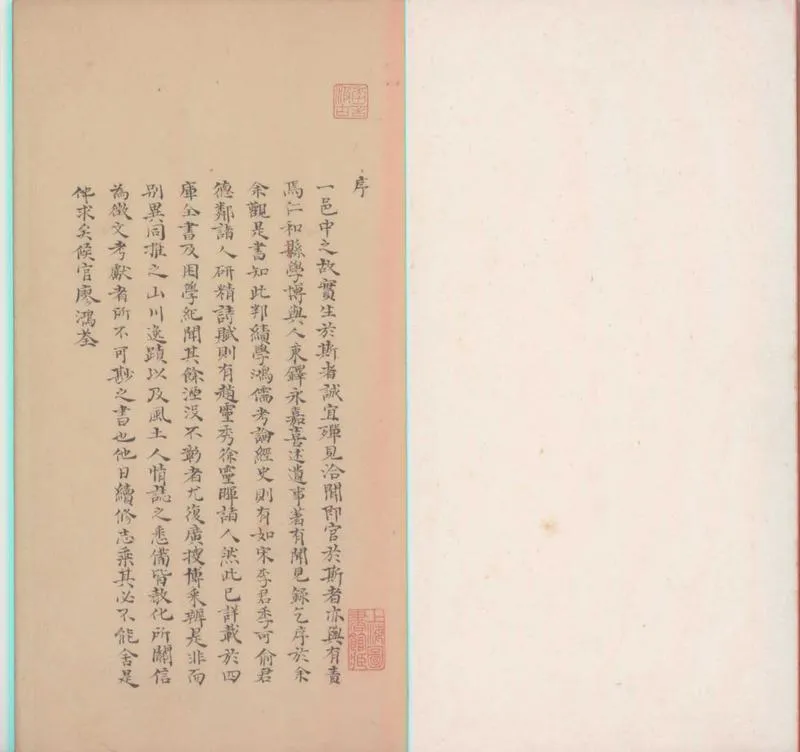 序
一邑中之故實生於斯者誠宜殫見洽聞即官於斯者亦與有責
焉仁和縣學博與人東鐸永嘉喜述遺事著有聞見錄乞序於余
余觀是書知此邦績學鴻儒考論經史則有如宋季君季可俞君
德鄰諸人研精詩賦則有趙靈秀徐靈暉諸人然此已詳載於四
庫全書及困學紀聞其餘湮沒不彰者尤復廣搜博采辨是非而
別異同推之山川逸蹟以及風土人情誌之悉備皆教化所關信
為徵文考獻者所不可尠之書也他日續修志乘其必不能舍是
伴求矣候官廖鴻荃
上海圖
書館藏